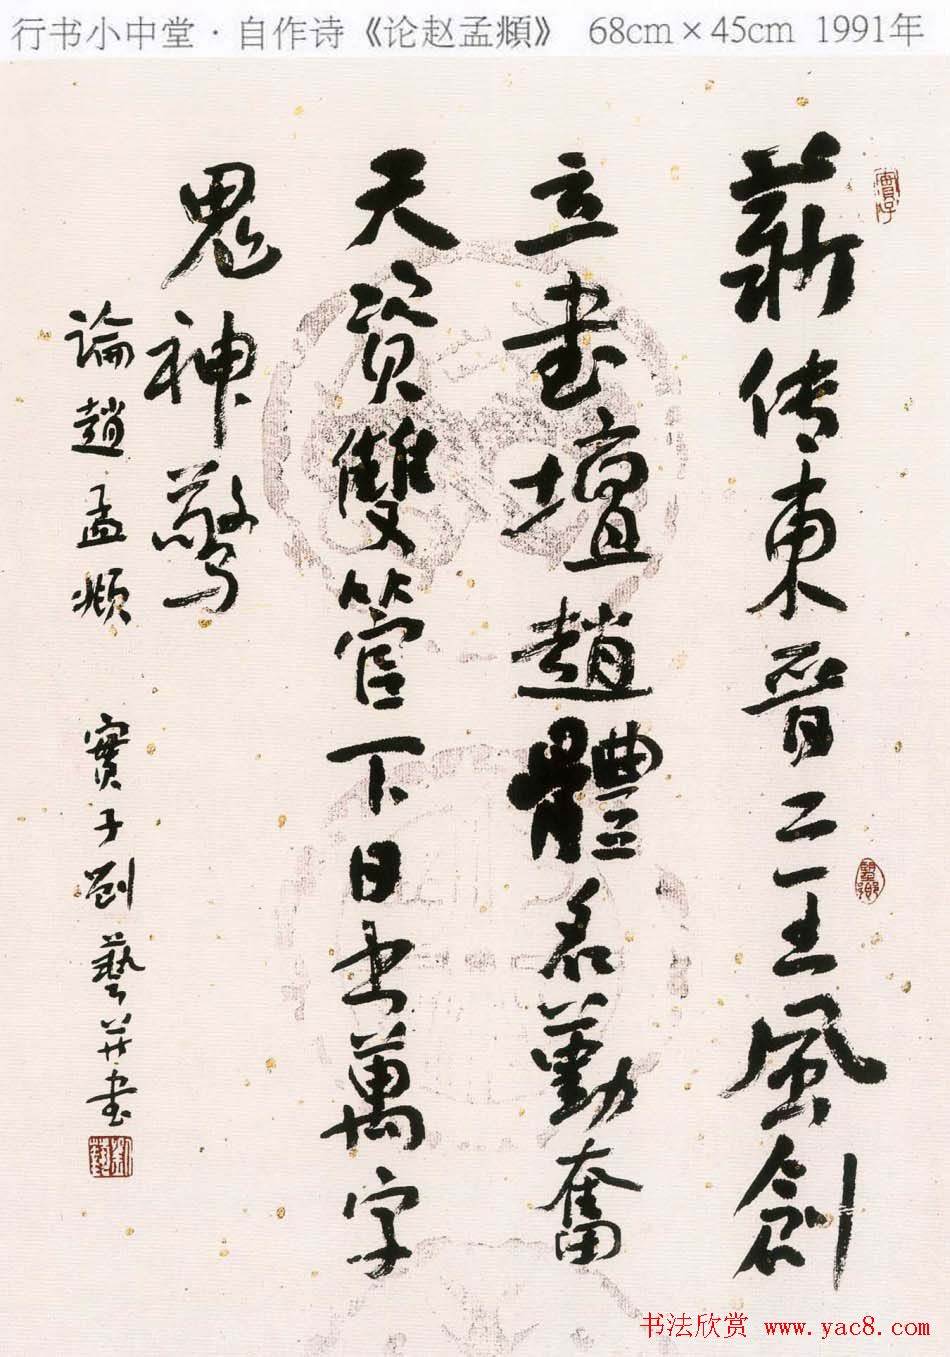 行书小中堂·自作诗《论赵孟頫》 68cm×45cm 1991年
薪传東晋二王風創
立书壇趙體名勤奮
天資雙管下日书萬字
鬼神驚
論趙孟頫 實子劉藝并书
书法欣赏 www.yac8.com